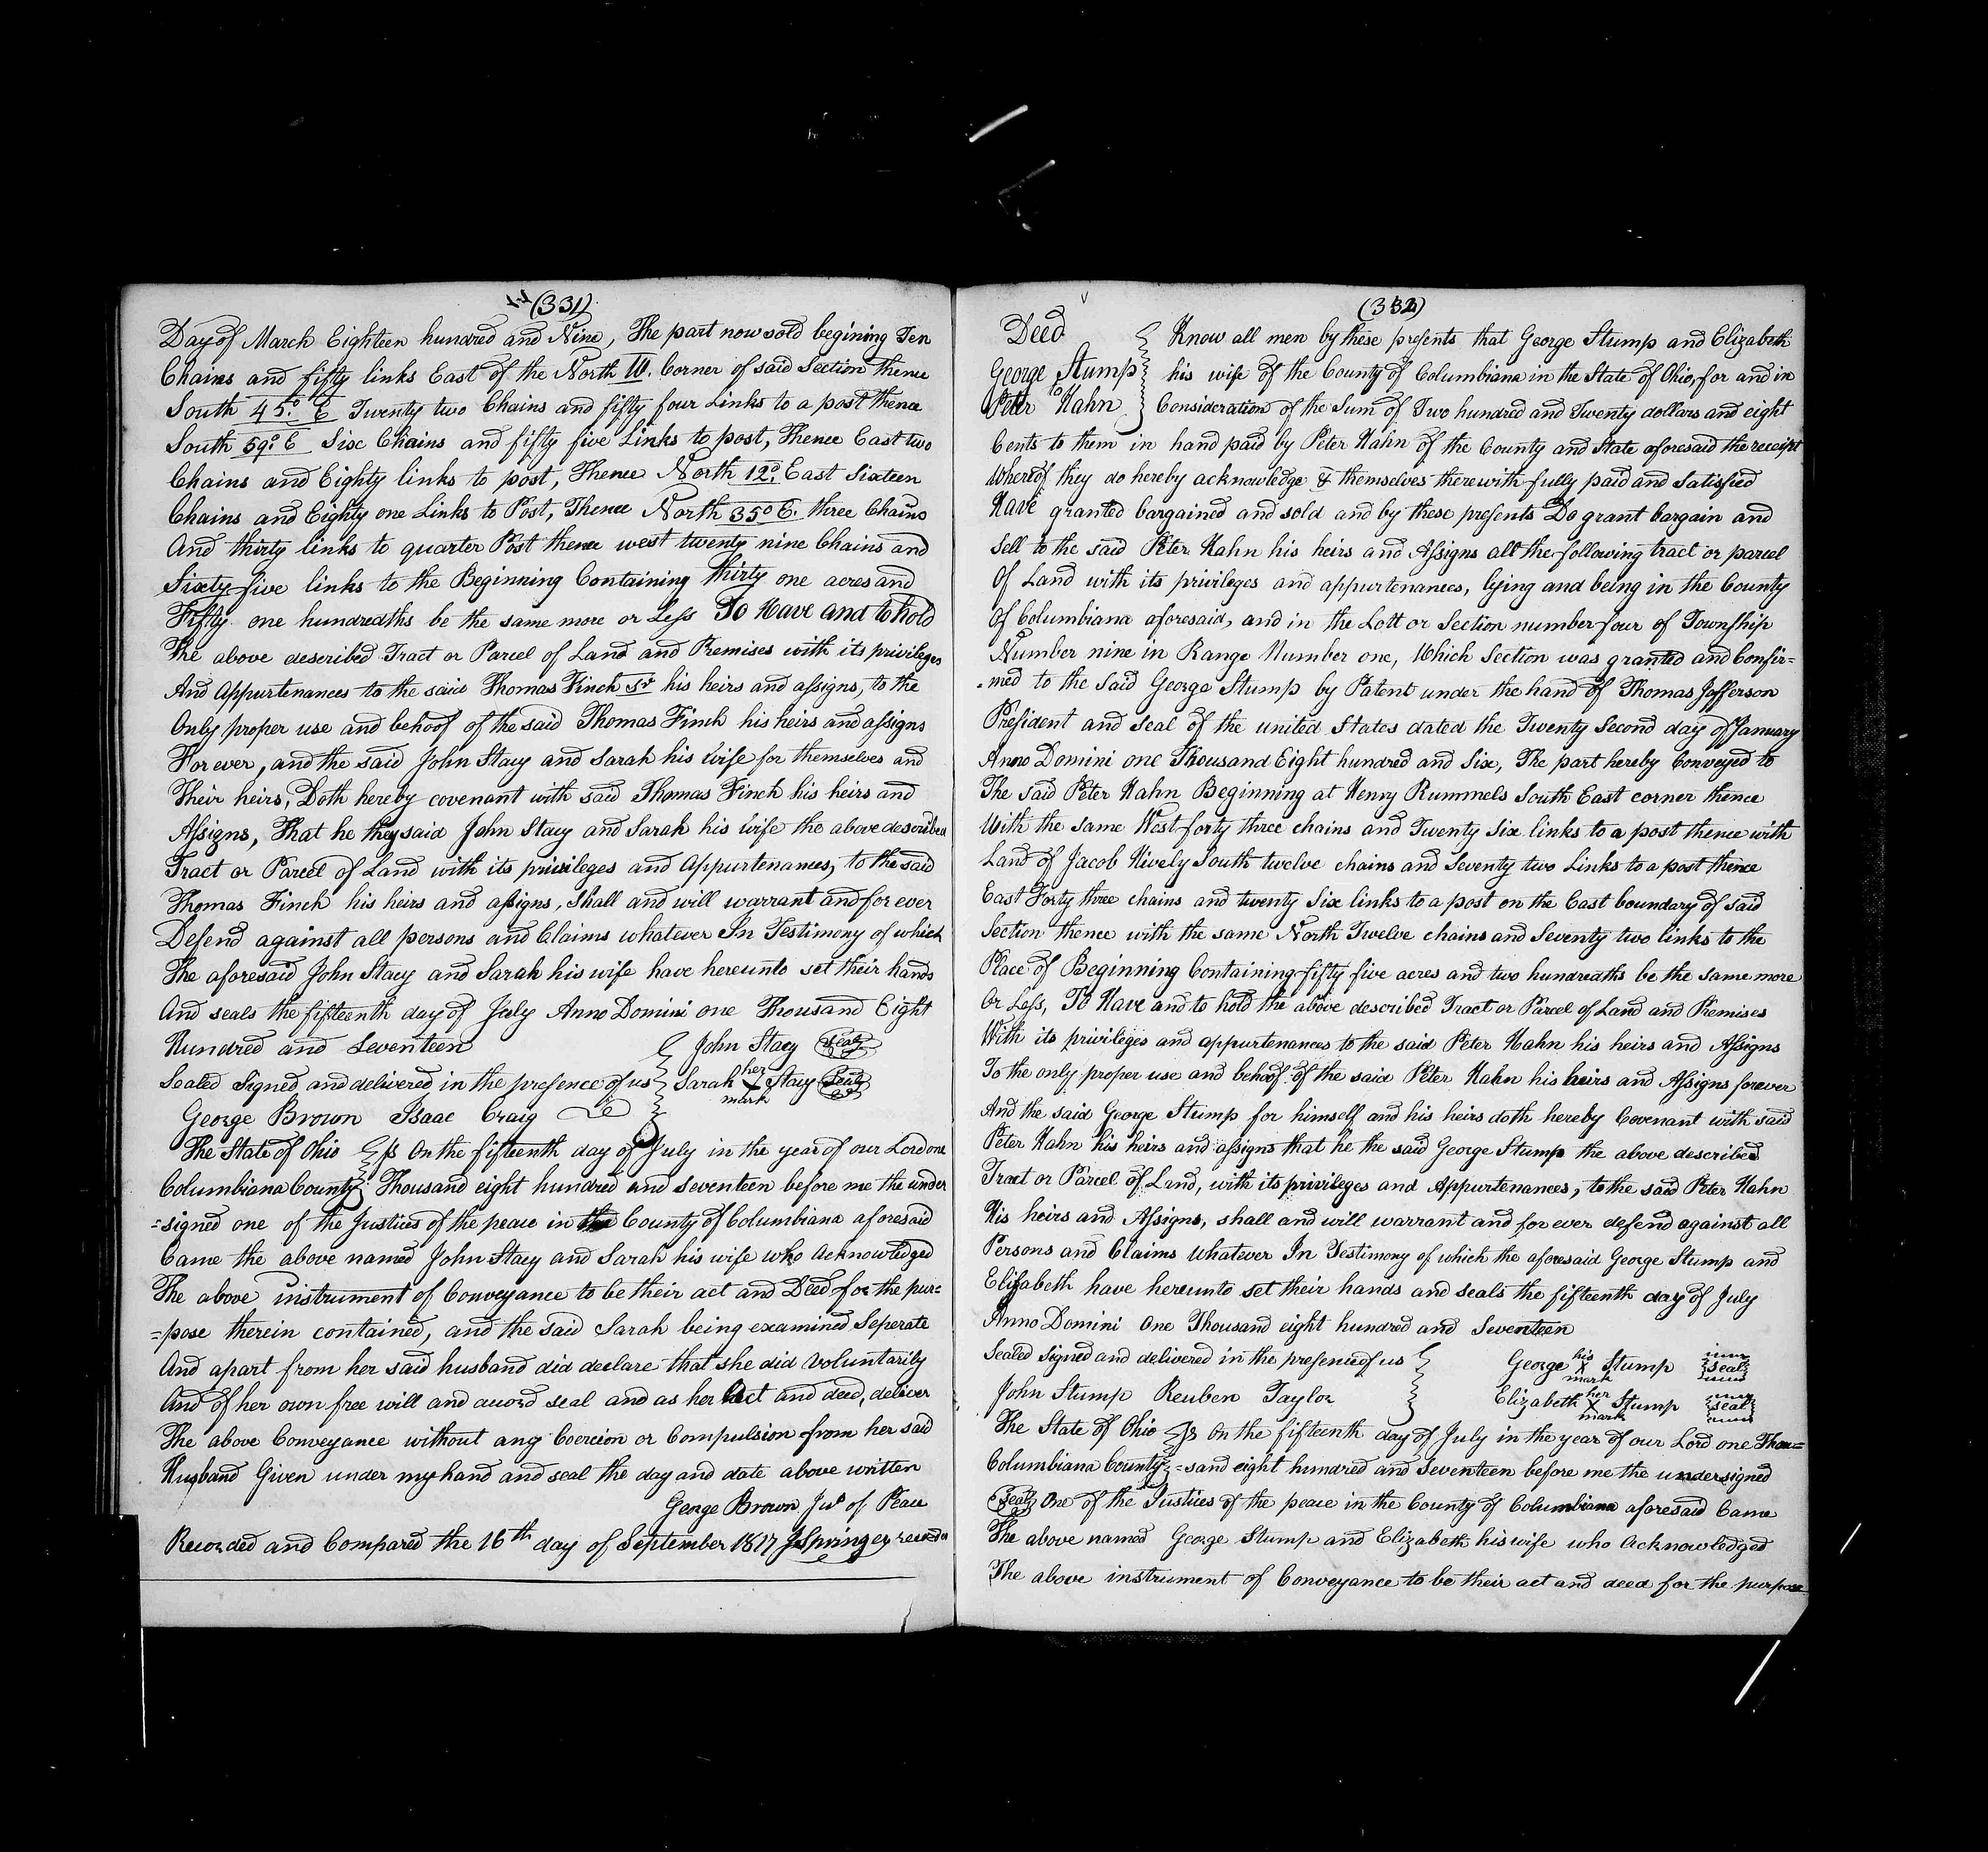 (331)
Day of March Eighteen hundred and Nine, The part now sold begining Ten
Chains and fifty links East of the North W. Corner of said Section thence
South 45.° E Twenty two Chains and fifty four Links to a post thence
South 59.° E Six Chains and fifty five Links to post, Thence East two
Chains and Eighty links to post, Thence North 12.° East Sixteen
Chains and Eighty one Links to Post, Thence North 35° E. three Chains
And thirty links to quarter Post thence west twenty nine Chains and
Sixty five links to the Beginning Containing thirty one acres and
Fifty one hundredths be the same more or Less To Have and to hold
The above described Tract or Parcel of Land and Premises with its privileges
And Appurtenances to the said Thomas Finch Sr his heirs and assigns, to the
Only proper use and behoof of the said Thomas Finch his heirs and assigns
For ever, and the said John Stacy and Sarah his wife for themselves and
Their heirs, Doth hereby covenant with said Thomas Finch his heirs and
Assigns, That he they said John Stacy and Sarah his wife the above described
Tract or Parcel of Land with its privileges and Appurtenances, to the said
Thomas Finch his heirs and assigns, Shall and will warrant and for ever
Defend against all persons and Claims whatever In Testimony of which
The aforesaid John Stacy and Sarah his wife have hereunto set their hands
And seals the fifteenth day of July Anno Domini one Thousand Eight
Hundred and Seventeen John Stacy Seal
Sealed Signed and delivered in the presence of us Sarah her X mark Stacy Seal
George Brown Isaac Craig
The State of Ohio ss On the fifteenth day of July in the year of our Lord one
Columbiana County Thousand eight hundred and seventeen before me the under
=signed one of the Justices of the peace in the County of Columbiana aforesaid
Came the above named John Stacy and Sarah his wife who Acknowledged
The above instrument of Conveyance to be their act and Deed for the pur=
=pose therein contained, and the said Sarah being examined Seperate
And apart from her said husband did declare that she did Voluntarily
And of her own free will and accord seal and as her act and deed, deliver
The above Conveyance without any Coercion or Compulsion from her said
Husband Given under my hand and seal the day and date above written
George Brown Jus of Peace
Recorded and Compared the 16th day of September 1817 J Springer recorder
(332)
Deed
George Stump
to
Peter Hahn
Know all men by these presents that George Stump and Elizabeth
his wife of the County of Columbiana in the State of Ohio, for and in
Consideration of the Sum of Two hundred and Twenty dollars and eight
Cents to them in hand paid by Peter Hahn of the County and State aforesaid the receipt
Whereof they do hereby acknowledge & themselves therewith fully paid and Satisfied
Have granted bargained and sold and by these presents Do grant bargain and
Sell to the said Peter Hahn his heirs and Assigns all the following tract or parcel
Of Land with its privileges and appurtenances, lying and being in the County
Of Columbiana aforesaid, and in the Lott or Section number four of Township
Number nine in Range Number one, Which Section was granted and Confir=
=med to the Said George Stump by Patent under the hand of Thomas Jefferson
President and seal of the united States dated the Twenty Second day of January
Anno Domini one Thousand Eight hundred and Six, The part hereby Conveyed to
The said Peter Hahn Beginning at Henry Rummels South East corner thence
With the same West forty three chains and Twenty Six links to a post thence with
Land of Jacob Hively South twelve chains and Seventy two Links to a post thence
East Forty three chains and twenty Six links to a post on the East boundary of said
Section thence with the same North Twelve chains and Seventy two links to the
Place of Beginning Containing fifty five acres and two hundredths be the same more
Or Less, To Have and to hold the above described Tract or Parcel of Land and Premises
With its privileges and appurtenances to the said Peter Hahn his heirs and Assigns
To the only proper use and behoof of the said Peter Hahn his heirs and Assigns forever
And the said George Stump for himself and his heirs doth hereby Covenant with said
Peter Hahn his heirs and assigns that he the said George Stump the above described
Tract or Parcel of Land, with its privileges and Appurtenances, to the said Peter Hahn
His heirs and Assigns, shall and will warrant and for ever defend against all
Persons and Claims Whatever In Testimony of which the aforesaid George Stump and
Elizabeth have hereunto set their hands and seals the fifteenth day of July
Anno Domini One Thousand eight hundred and Seventeen
Sealed Signed and delivered in the presence of us George his X mark Stump seal
John Stump Reuben Taylor Elizabeth her X mark Stump seal
The State of Ohio ss On the fifteenth day of July in the year of our Lord one Thou=
Columbiana County =sand eight hundred and Seventeen before me the undersigned
Seal One of the Justices of the peace in the County of Columbiana aforesaid Came
The above named George Stump and Elizabeth his wife who Acknowledged
The above instrument of Conveyance to be their act and deed for the purpose